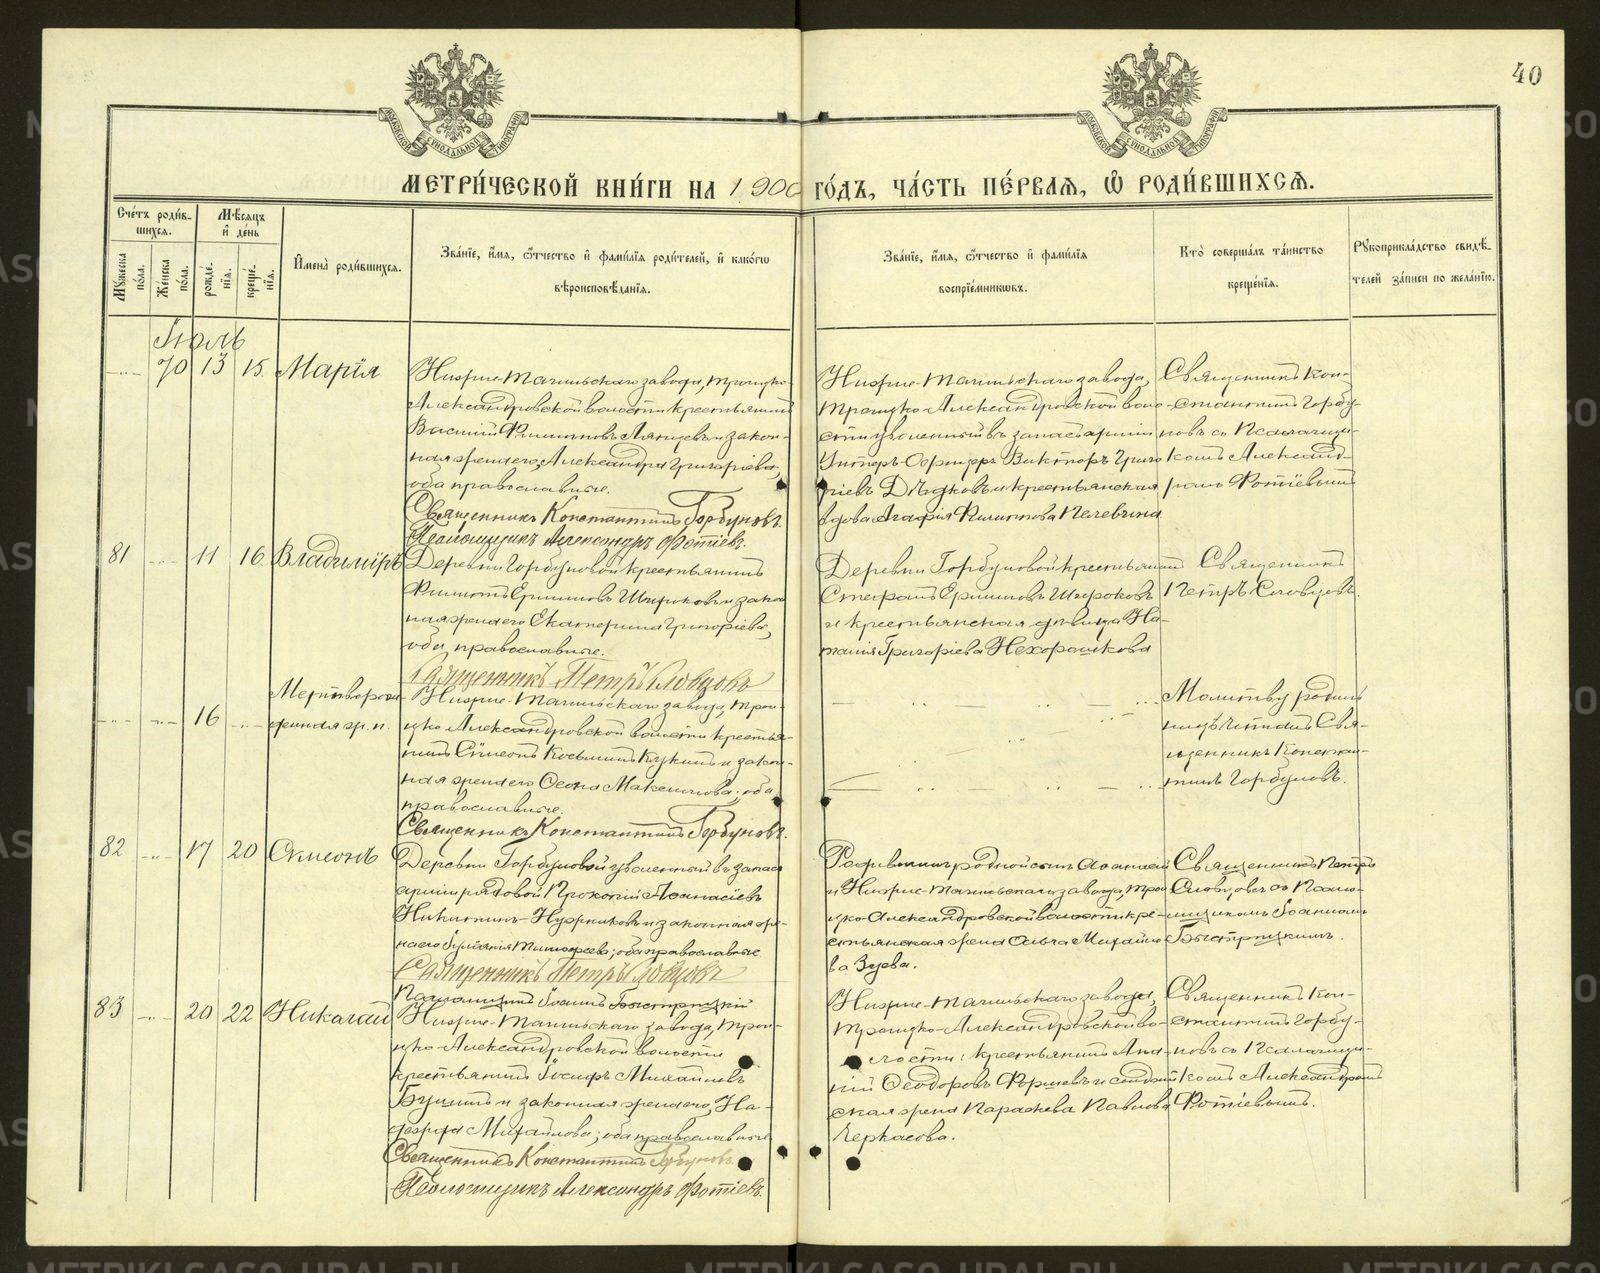 40
МЕТРИ́ЧЕСКОЙ КНИ́ГИ НА 1900 ГО́ДЪ, ЧА́СТЬ ПЕ́РВАЯ, Ѿ РОДИ́ВШИХСЯ.
Сче́тъ роди́в-
шихся.
Мꙋ́жеска по́ла.
Же́нска по́ла.
Мѣ́сяцъ
и҆ де́нь
рожде́нїя.
креще́нїя.
И҆мена̀ роди́вшихся.
Зва́нїе, и҆́мя, ѻ҆́тчество и҆ фами́лїя роди́телей, и҆ како́гѡ
вѣроисповѣ́данїя.
Зва́нїе, и҆́мя, ѻ҆́тчество и҆ фами́лїя
воспрїе́мникѡвъ.
Кто̀ соверша́лъ та́инство
креще́нїя.
Рꙋкоприкла́дство свидѣ́-
телей за́писи по жела́нїю.
Іюль
70 13 15. Марія
Нижне-Тагильскаго завода, Троицко-
Александровской волости крестьянинъ
Василій Филипповъ Ляпцевъ и закон-
ная жена его Александра Григоріева,
оба православные.
Священникъ Константинъ Горбуновъ.
Псаломщикъ Александръ Фотіевъ.
Нижне-Тагильскаго завода,
Троицко-Александровской воло-
сти уволенный въ запасъ арміи
Унтеръ-Офицеръ Викторъ Григо
ріевъ Дѣдковъ и крестьянская
вдова Агафія Филиппова Пелевина
Священникъ Кон-
стантинъ Горбу-
новъ съ Псаломщи-
комъ Александ-
ромъ Фотіевымъ
81 11 16 Владиміръ
Деревни Горбуновой крестьянинъ
Филиппъ Ермиловъ Широковъ и закон
ная жена его Екатерина Григоріева,
оба православные.
Священникъ Петръ Словцовъ
Деревни Горбуновой крестьянинъ
Стефанъ Ермиловъ Широковъ
и крестьянская дѣвица На-
талія Григоріева Нехорошкова
Священникъ
Петръ Словцовъ.
16 Мертворож-
денная ж. п.
Нижне-Тагильскаго завода, Трои-
цко-Александровской волости крестья-
нинъ Сѵмеонъ Косьминъ Кукинъ и закон-
ная жена его Ѳеона Макеимова; оба
православные.
Священникъ Константинъ Горбуновъ.
Молитву родиль
ницѣ читалъ Свя-
щенникъ Констан-
тинъ Горбуновъ.
82 17 20 Сѵмеонъ
Деревни Горбуновой уволенный въ запасъ
арміи рядовой Прокопій Аѳанасіевъ
Никитинъ-Нужниковъ и законная же-
на его Іуліанія Тимоѳеева; оба православные
Священникъ Петръ Словцовъ
Псаломщикъ Іоаннъ Быстрицкій
родной сынъ Аѳанасій
и Нижне-Тагильскаго завода, Трои
цко-Александровской волости кре-
стьянская жена Ольга Михайло
ва Зуева.
Священникъ Петръ
Словцовъ съ Псало-
мщикомъ Іоанномъ
Быстрицкимъ.
83 20 22 Николай
Нижне-Тагильскаго завода, Трои-
цко-Александровской волости
крестьянинъ Іосифъ Михайловъ
Бушинъ и законная жена его, На-
дежда Михайлова; оба православные
Священникъ Константинъ Горбуновъ.
Псаломщикъ Александръ Фотіевъ.
Нижне-Тагильскаго завода,
Троицко-Александровской во-
лости: крестьянинъ Ана-
ній Ѳеодоровъ и солдат
ская жена Параскева Павлова
Черкасова.
Священникъ Кон-
стантинъ Горбу-
новъ съ Псаломщи-
комъ Александромъ
Фотіевымъ.